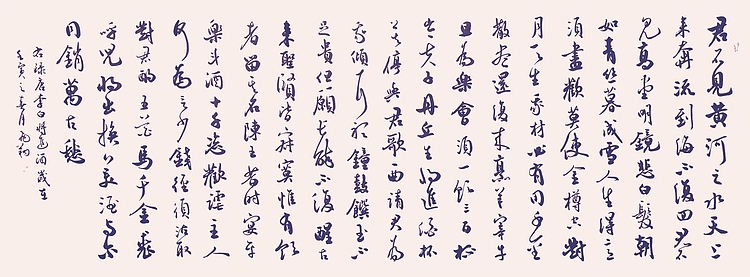 君不見黃河之水天上
來奔流到海不復回君不
見高堂明鏡悲白髮朝
如青絲暮成雪人生得意
須盡歡莫使金樽空對
月天生我材必有用千金
散盡還復來烹羊宰牛
且為樂會須一飲三百杯
岑夫子丹丘生將進酒杯
莫停與君歌一曲請君為
我傾耳聽鐘鼓饌玉不
足貴但願長醉不復醒古
來聖賢皆寂寞惟有飲
者留其名陳王昔時宴平
樂斗酒十千恣歡謔主人
何為言少錢徑須沽取
對君酌五花馬千金裘
呼兒將出換美酒與爾
同銷萬古愁
右錄唐李白將進酒歲在
壬寅之春月